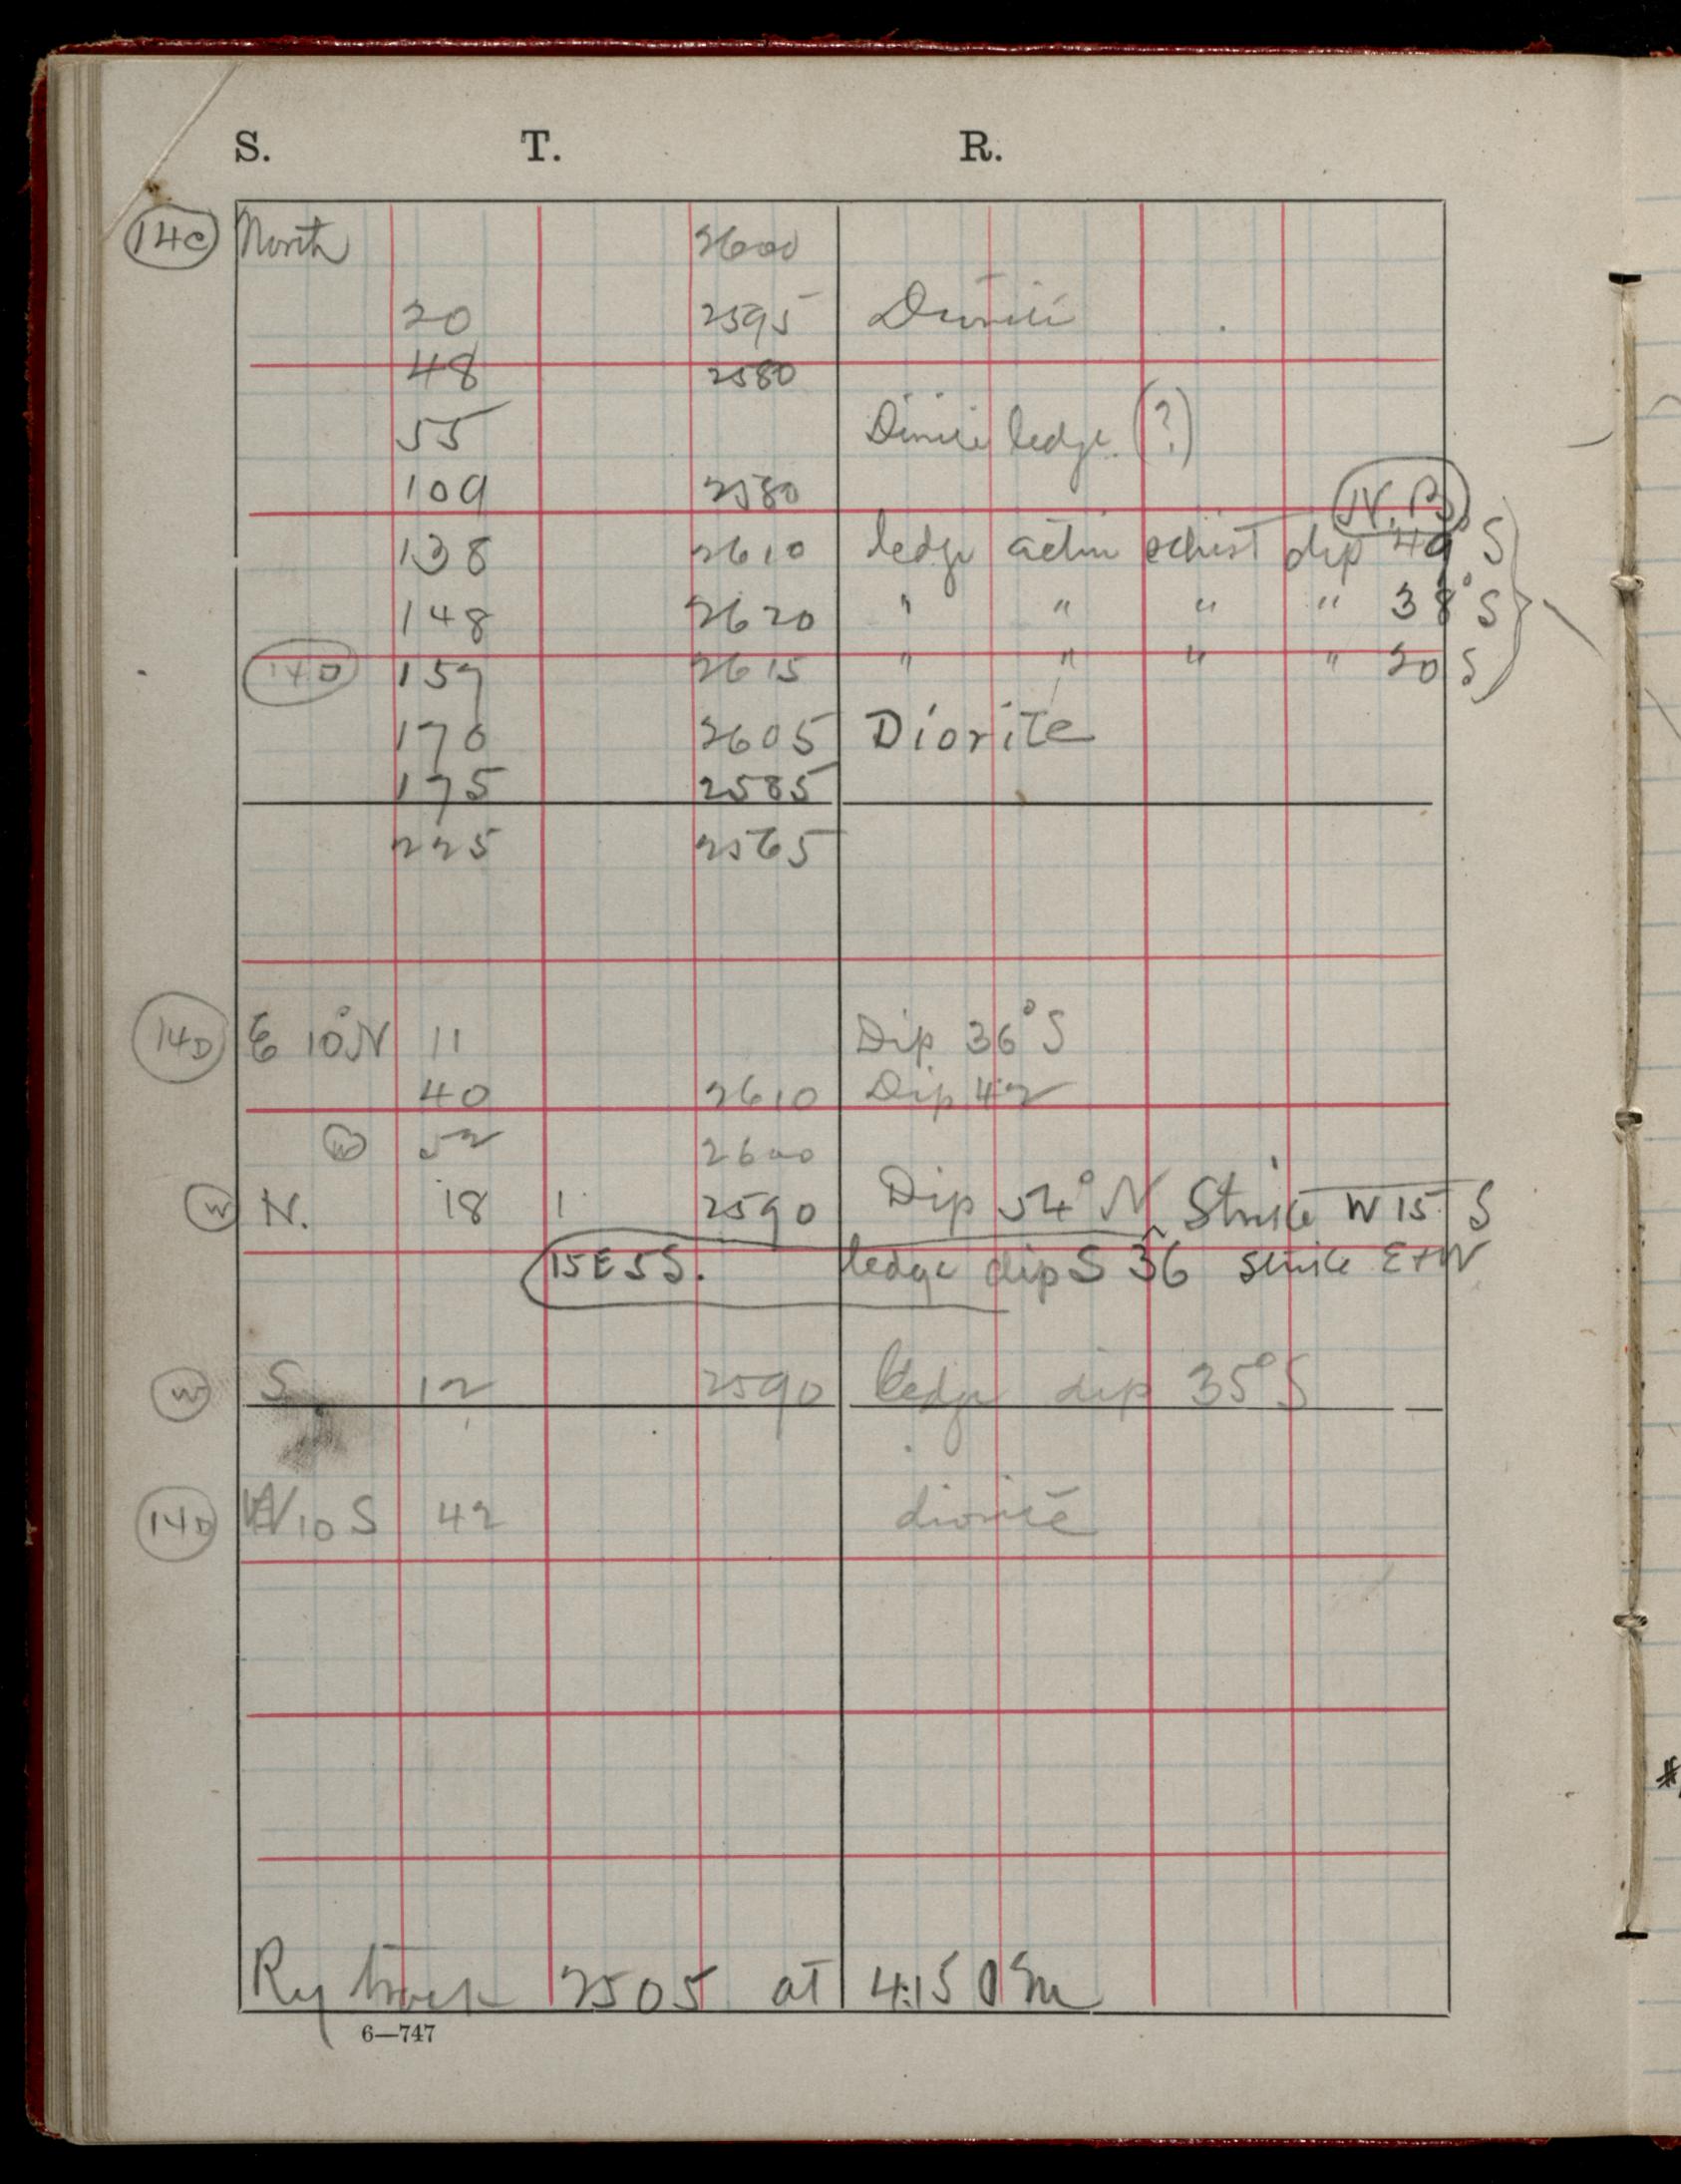 S. T. R.
14C North 2600
20 2595 Diorite
48 2580
55 Diorite ledge (?)
109 2580
N.B.
138 2610 ledge actin schist dip 49° S
148 2620 " " " " 38° S
14D 159 2615 " " " " 20 S
170 2605 Diorite
175 2585
225 2565
14D E 10°N 11 Dip 36° S
40 2610 Dip 42
W 52 2600
W N. 18 2590 Dip 54° N Strike W 15 S
15E5S. ledge dip S 36 strike E+W
W S 12 2590 ledge dip 35° S
14D W10 S 42 diorite
Ry track 2505 at 4:15 Pm
6—747